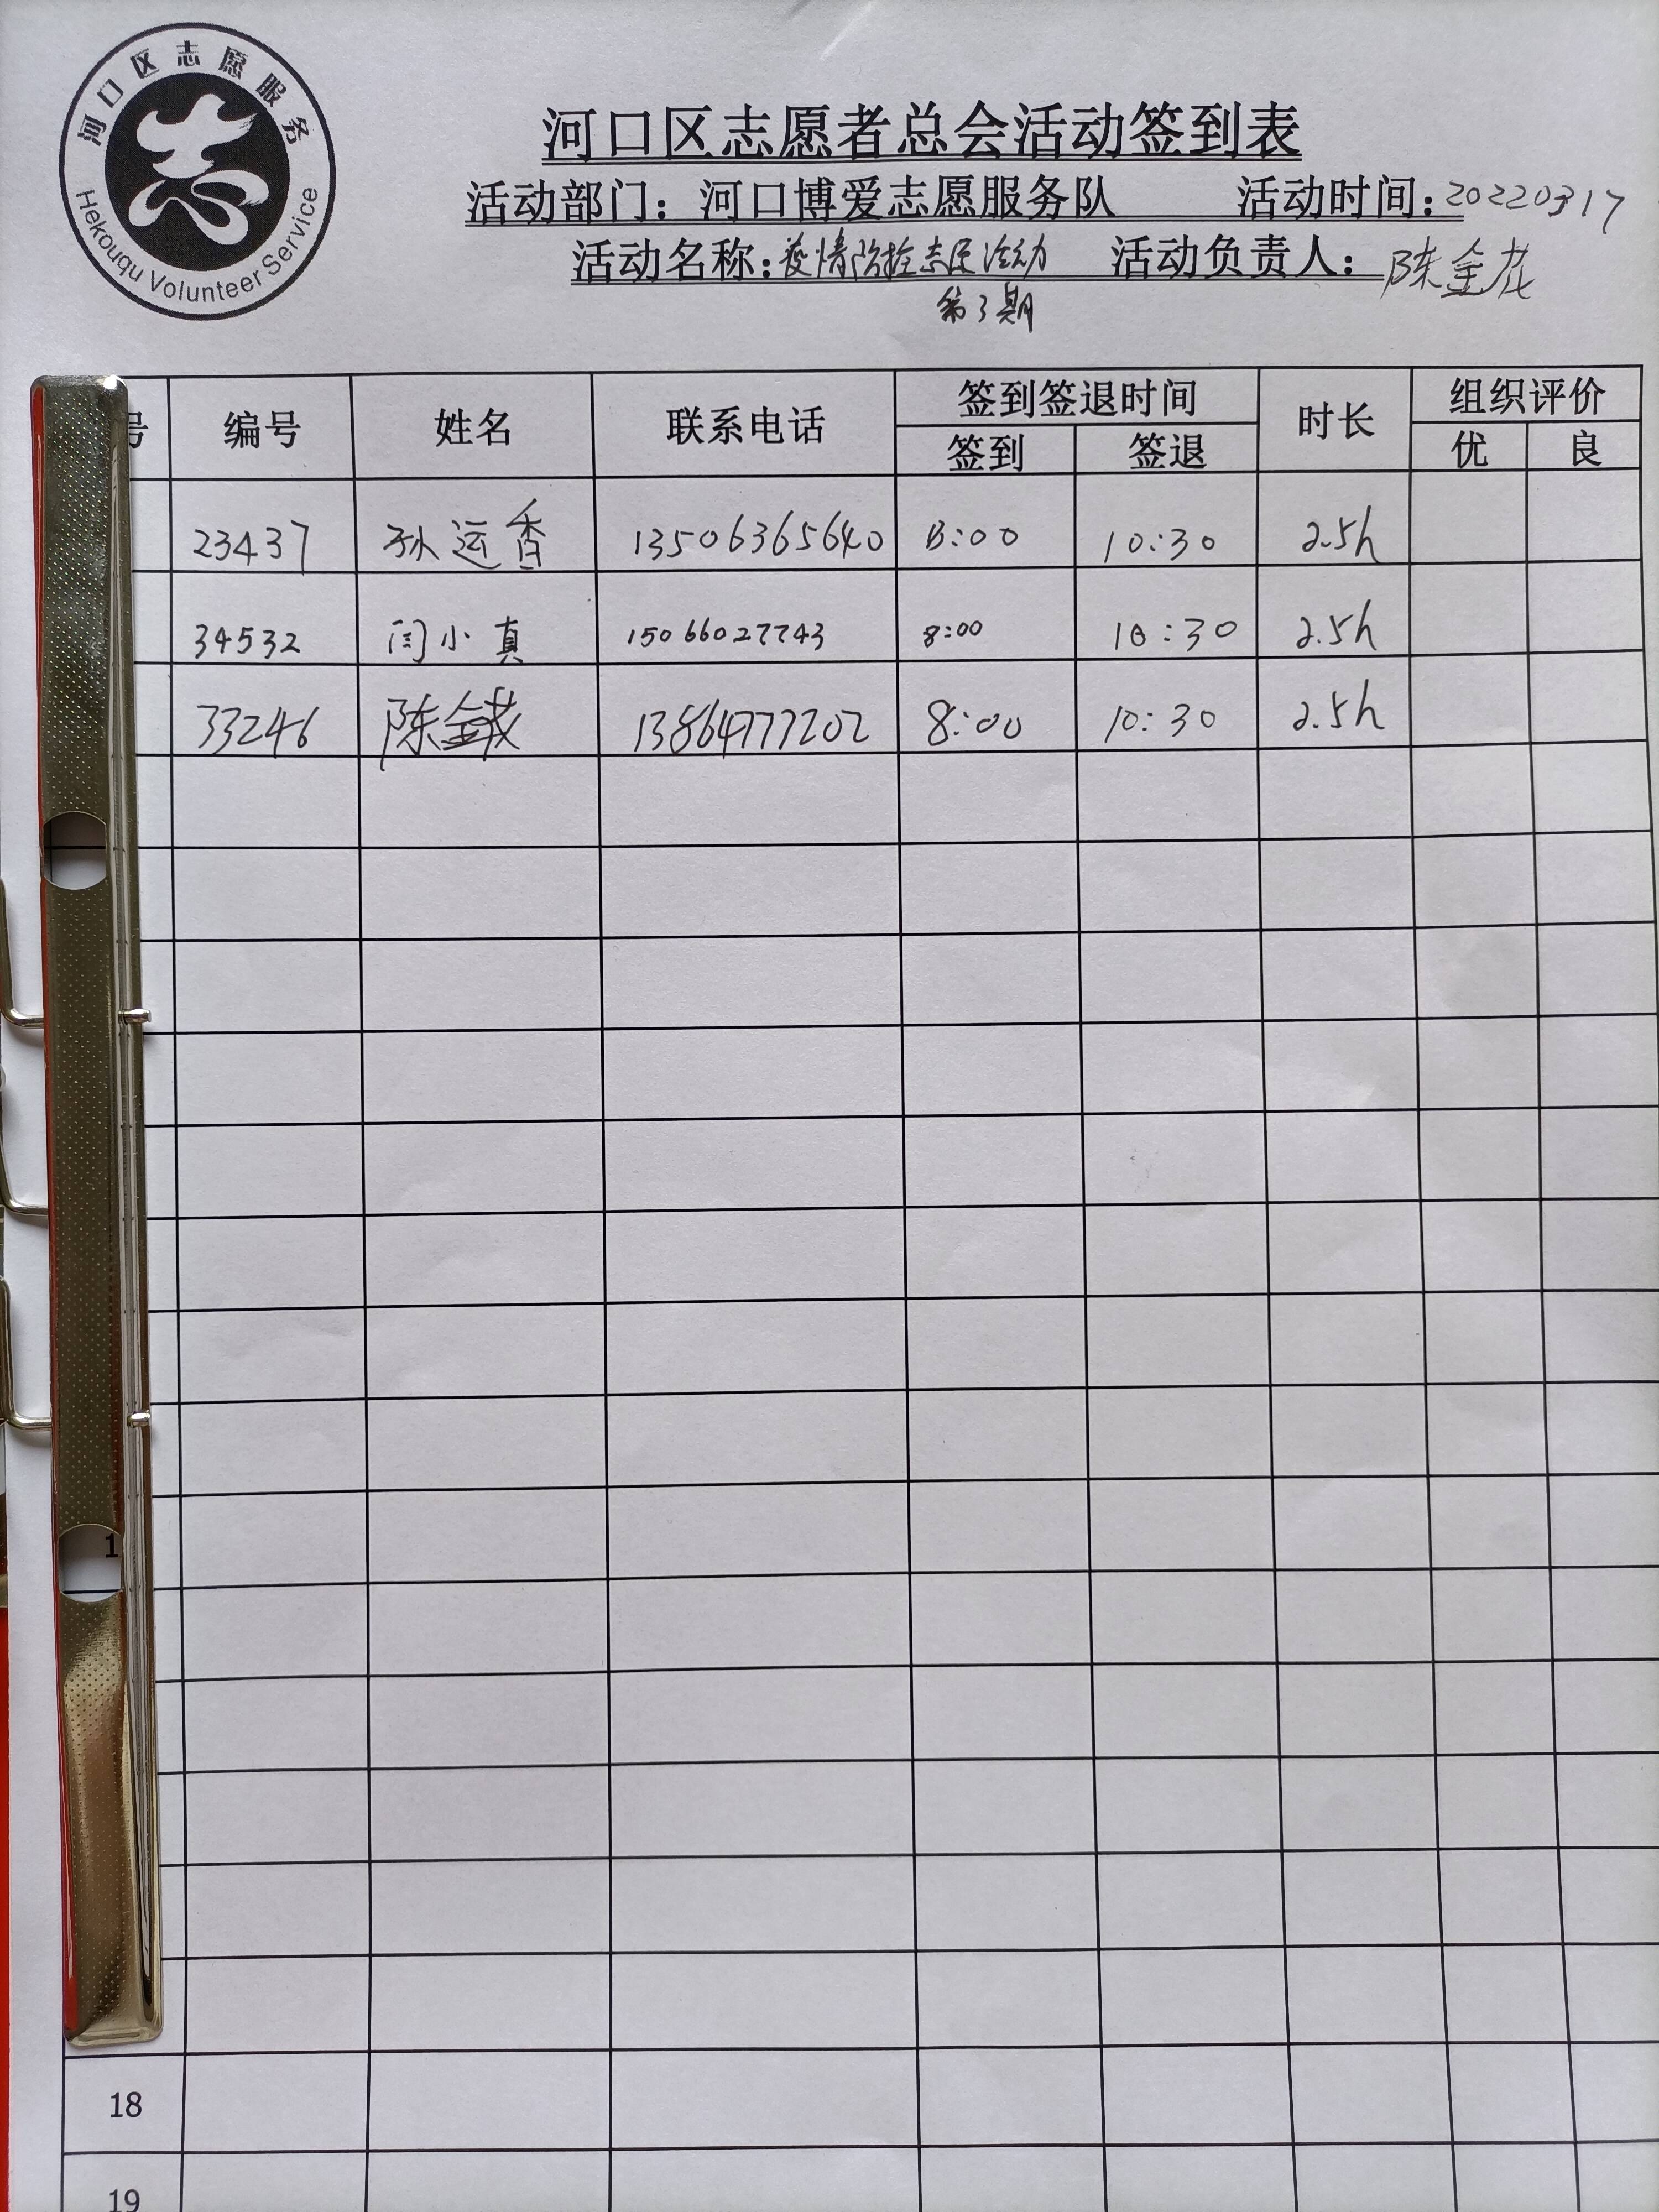 河口区志愿服务
Hekouqu Volunteer Service
河口区志愿者总会活动签到表
活动部门：河口博爱志愿服务队 活动时间：20220317
活动名称：疫情防控志愿活动 活动负责人：陈金花
第3期
号 编号 姓名 联系电话 签到签退时间 时长 组织评价
签到 签退 优 良
23437 孙运香 13506365640 8:00 10:30 2.5h
34532 闫小真 15066027743 8:00 10:30 2.5h
33246 陈金花 13864777202 8:00 10:30 2.5h
1
18
19